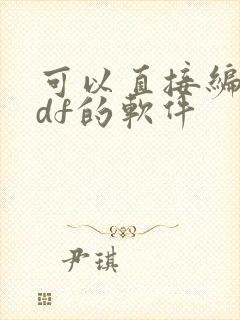 可以直接编
df的软件
尹琪